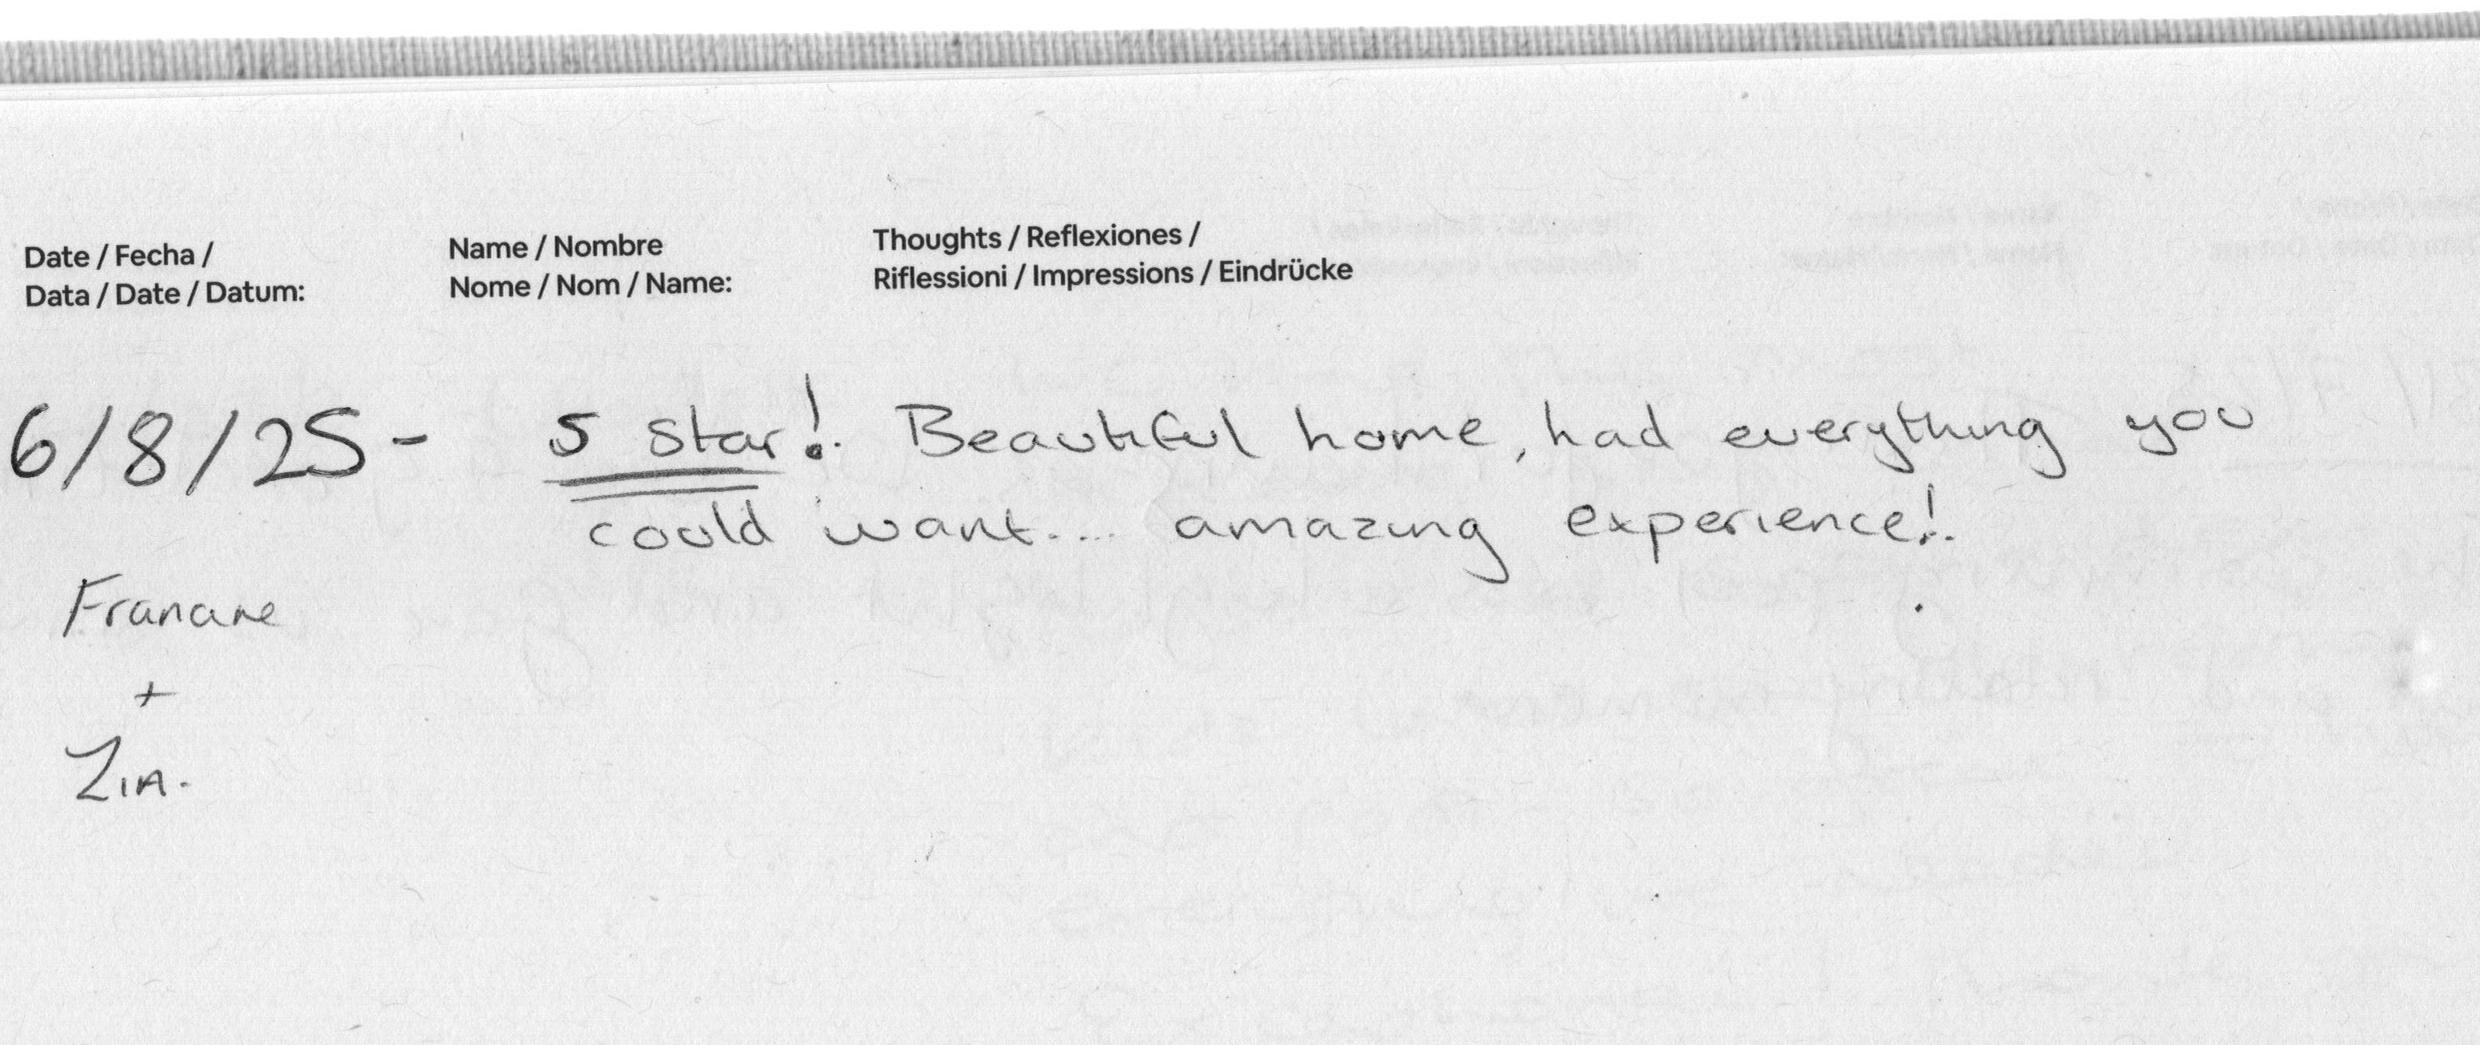 Date / Fecha /
Data / Date / Datum:
Name / Nombre
Nome / Nom / Name:
Thoughts / Reflexiones /
Riflessioni / Impressions / Eindrücke
6/8/25 - 5 star! Beautiful home, had everything you
could want.... amazing experience!
+
Zia.